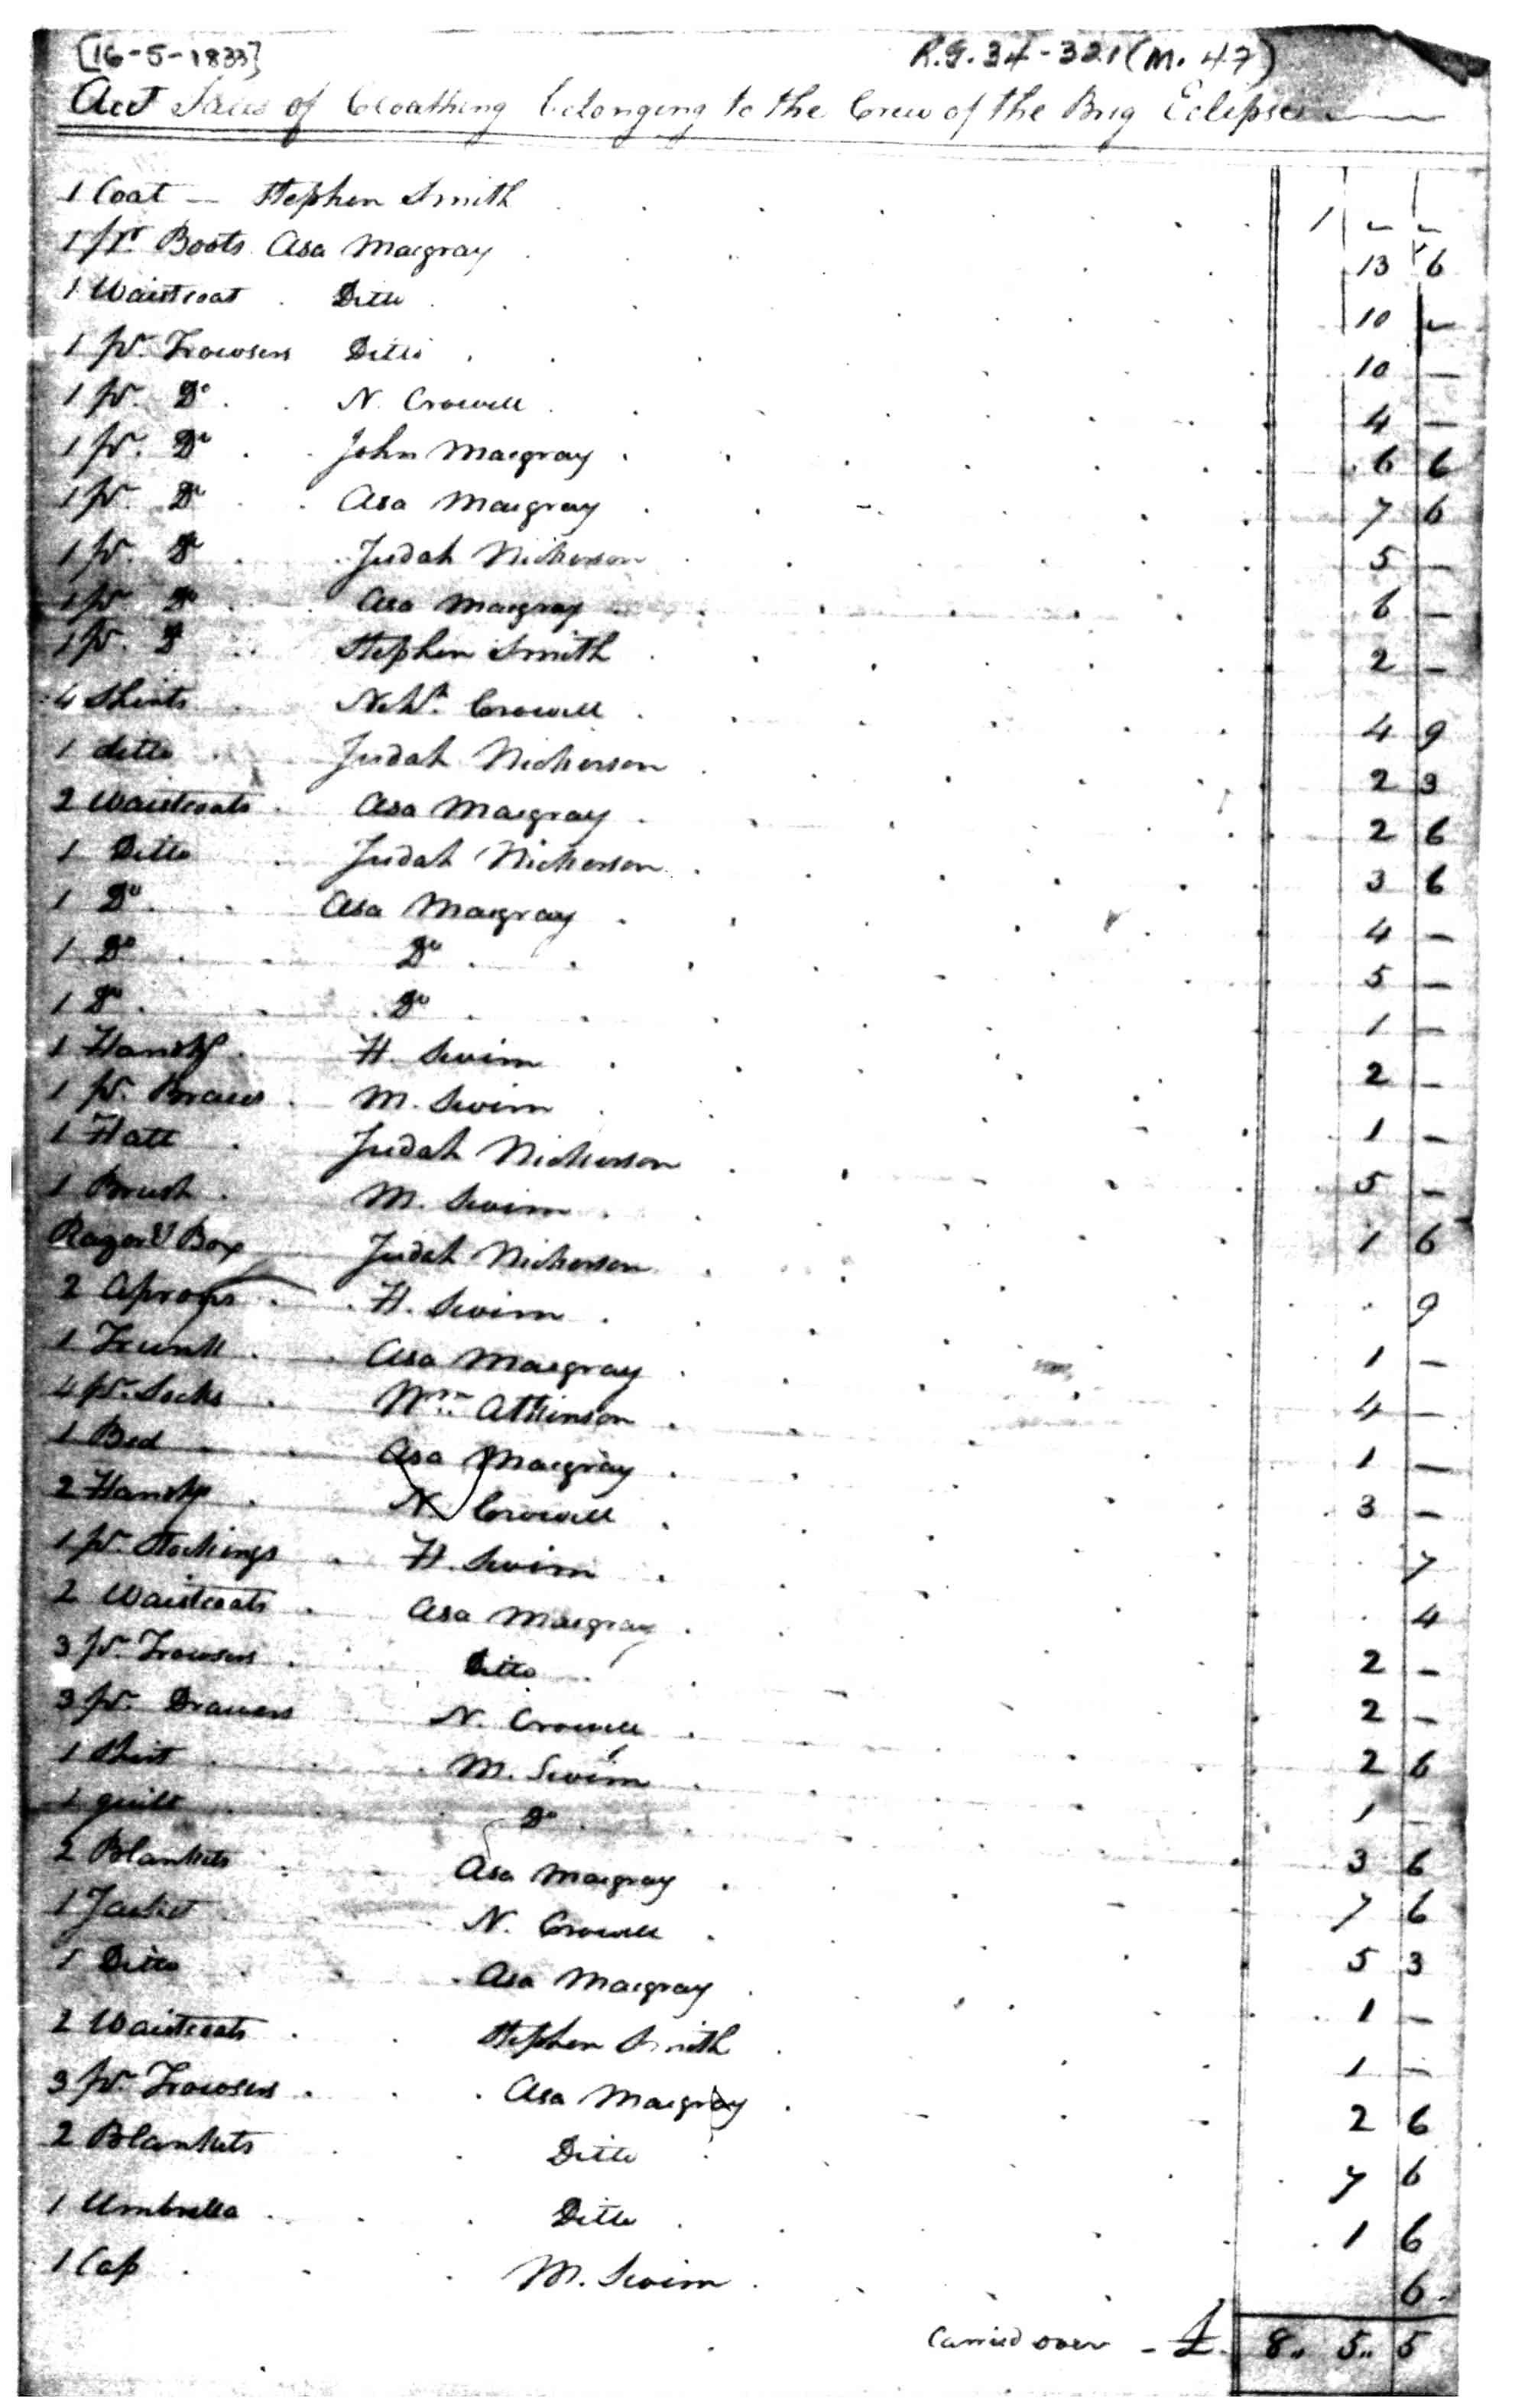 [16-5-1833]
R.G.34-321 (M. 47)
Acct Sales of Cloathing belonging to the Crew of the Brig Eclipse
1 Coat — Stephen Smith 1 - -
1 pr Boots Asa Macgray 13 6
1 Waistcoat Ditto 10 -
1 pr. Trowsers Ditto 10 —
1 pr. Do N. Crowell 4 —
1 pr. Do John Macgray 6 6
1 pr. Do Asa Macgray 7 6
1 pr. Do Judah Nickerson 5 —
1 pr Do Asa Macgray 6 —
1 pr. Do Stephen Smith 2 —
4 Shirts Nehh. Crowell 4 9
1 ditto Judah Nickerson 2 3
2 Waistcoats Asa Macgray 2 6
1 Ditto Judah Nickerson 3 6
1 Do Asa Macgray 4 —
1 Do Do 5 —
1 Do Do 1 —
1 Handkf H. Swim 2 —
1 pr. Braces M. Swim 1 —
1 Hatt Judah Nickerson 5 —
1 Brush M. Swim 1 6
Razor & Box Judah Nickerson 9
2 Aprons H. Swim 1 —
1 Trunk Asa Macgray 4 —
4 pr. Socks Wm. Atkinson 1 —
1 Bed Asa Macgray 3 —
2 Handkfs N. Crowell 7
1 pr. Stockings H. Swim 4
2 Waistcoats Asa Macgray 2 —
3 pr. Trowsers Ditto 2 —
3 pr. Drawers N. Crowell 2 6
1 Shirt M. Swim 1 —
1 quilt Do 3 6
2 Blankets Asa Macgray 7 6
1 Jacket N. Crowell 5 3
1 Ditto Asa Macgray 1 —
2 Waistcoats Stephen Smith 1 —
3 pr. Trowsers Asa Macgray 2 6
2 Blankets Ditto 7 6
1 Umbrella Ditto 1 6
1 Cap M. Swim 6
Carried over - £ 8.. 5.. 5